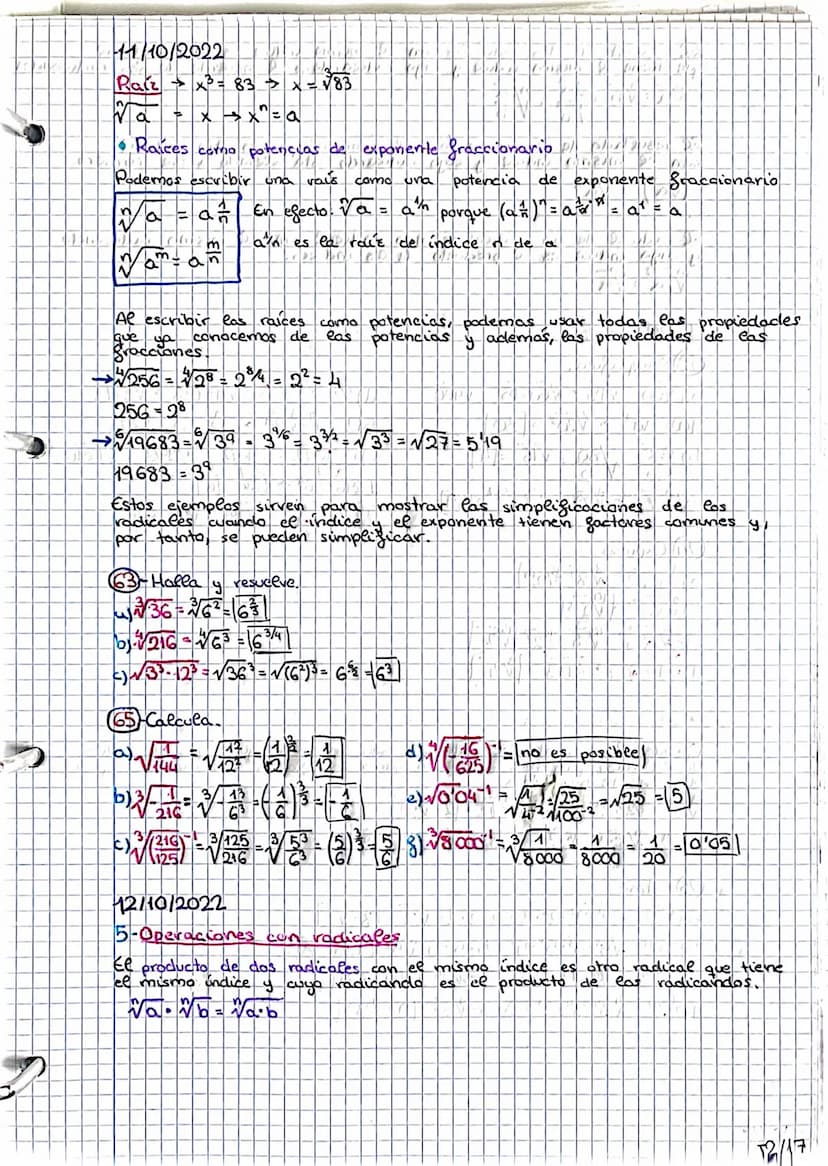 11/10/2022
Raíz → x³ = 83 → x = ∛83
ⁿ√a = x → xⁿ = a
• Raíces como potencias de exponente fraccionario
Podemos escribir una raís como una potencia de exponente fraccionario
ⁿ√a = a^(1/n) En efecto: ⁿ√a = a^(1/n) porque (a^(1/n))ⁿ = a^(1/n·n) = a¹ = a
ⁿ√a^m = a^(m/n) a^(1/n) es la raíz de índice n de a
Al escribir las raíces como potencias, podemos usar todas las propiedades
que ya conocemos de las potencias y además, las propiedades de las
fracciones.
→ ⁴√256 = ⁴√2⁸ = 2^(8/4) = 2² = 4
256 = 2⁸
→ ⁶√19683 = ⁶√3⁹ = 3^(9/6) = 3^(3/2) = √3³ = √27 = 5'19
19683 = 3⁹
Estos ejemplos sirven para mostrar las simplificaciones de los
radicales cuando el índice y el exponente tienen factores comunes y,
por tanto, se pueden simplificar.
63-Halla y resuelve.
a) ∛36 = ∛6² = 6^(2/3)
b) ⁴√216 = ⁴√6³ = 6^(3/4)
c) √3³·12³ = √36³ = √(6²)³ = 6^(6/2) = 6³
65-Calcula.
a) √(1/144) = √(1²/12²) = (1/12)^(2/2) = 1/12 d) ⁴√(-16/625)⁻¹ = no es posible
b) ∛-1/216 = ∛-1³/6³ = (-1/6)^(3/3) = -1/6 e) √0'04⁻¹ = = √25 = 5
c) ∛(216/125)⁻¹ = ∛125/216 = ∛5³/6³ = (5/6)^(3/3) = 5/6 f) ∛8000⁻¹ = ∛1/8000 = 1/8000 = 1/20 = 0'05
12/10/2022
5-Operaciones con radicales
El producto de dos radicales con el mismo índice es otro radical que tiene
el mismo índice y cuyo radicando es el producto de los radicandos.
ⁿ√a · ⁿ√b = ⁿ√a·b